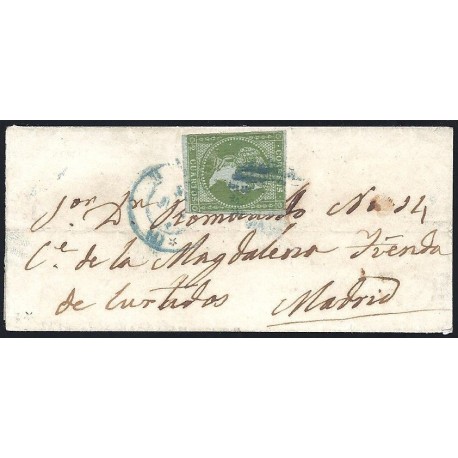 Sor. Dn Romualdo No. 24
Ce. de la Magdalena Tienda
de Curtidos Madrid
CUARTOS